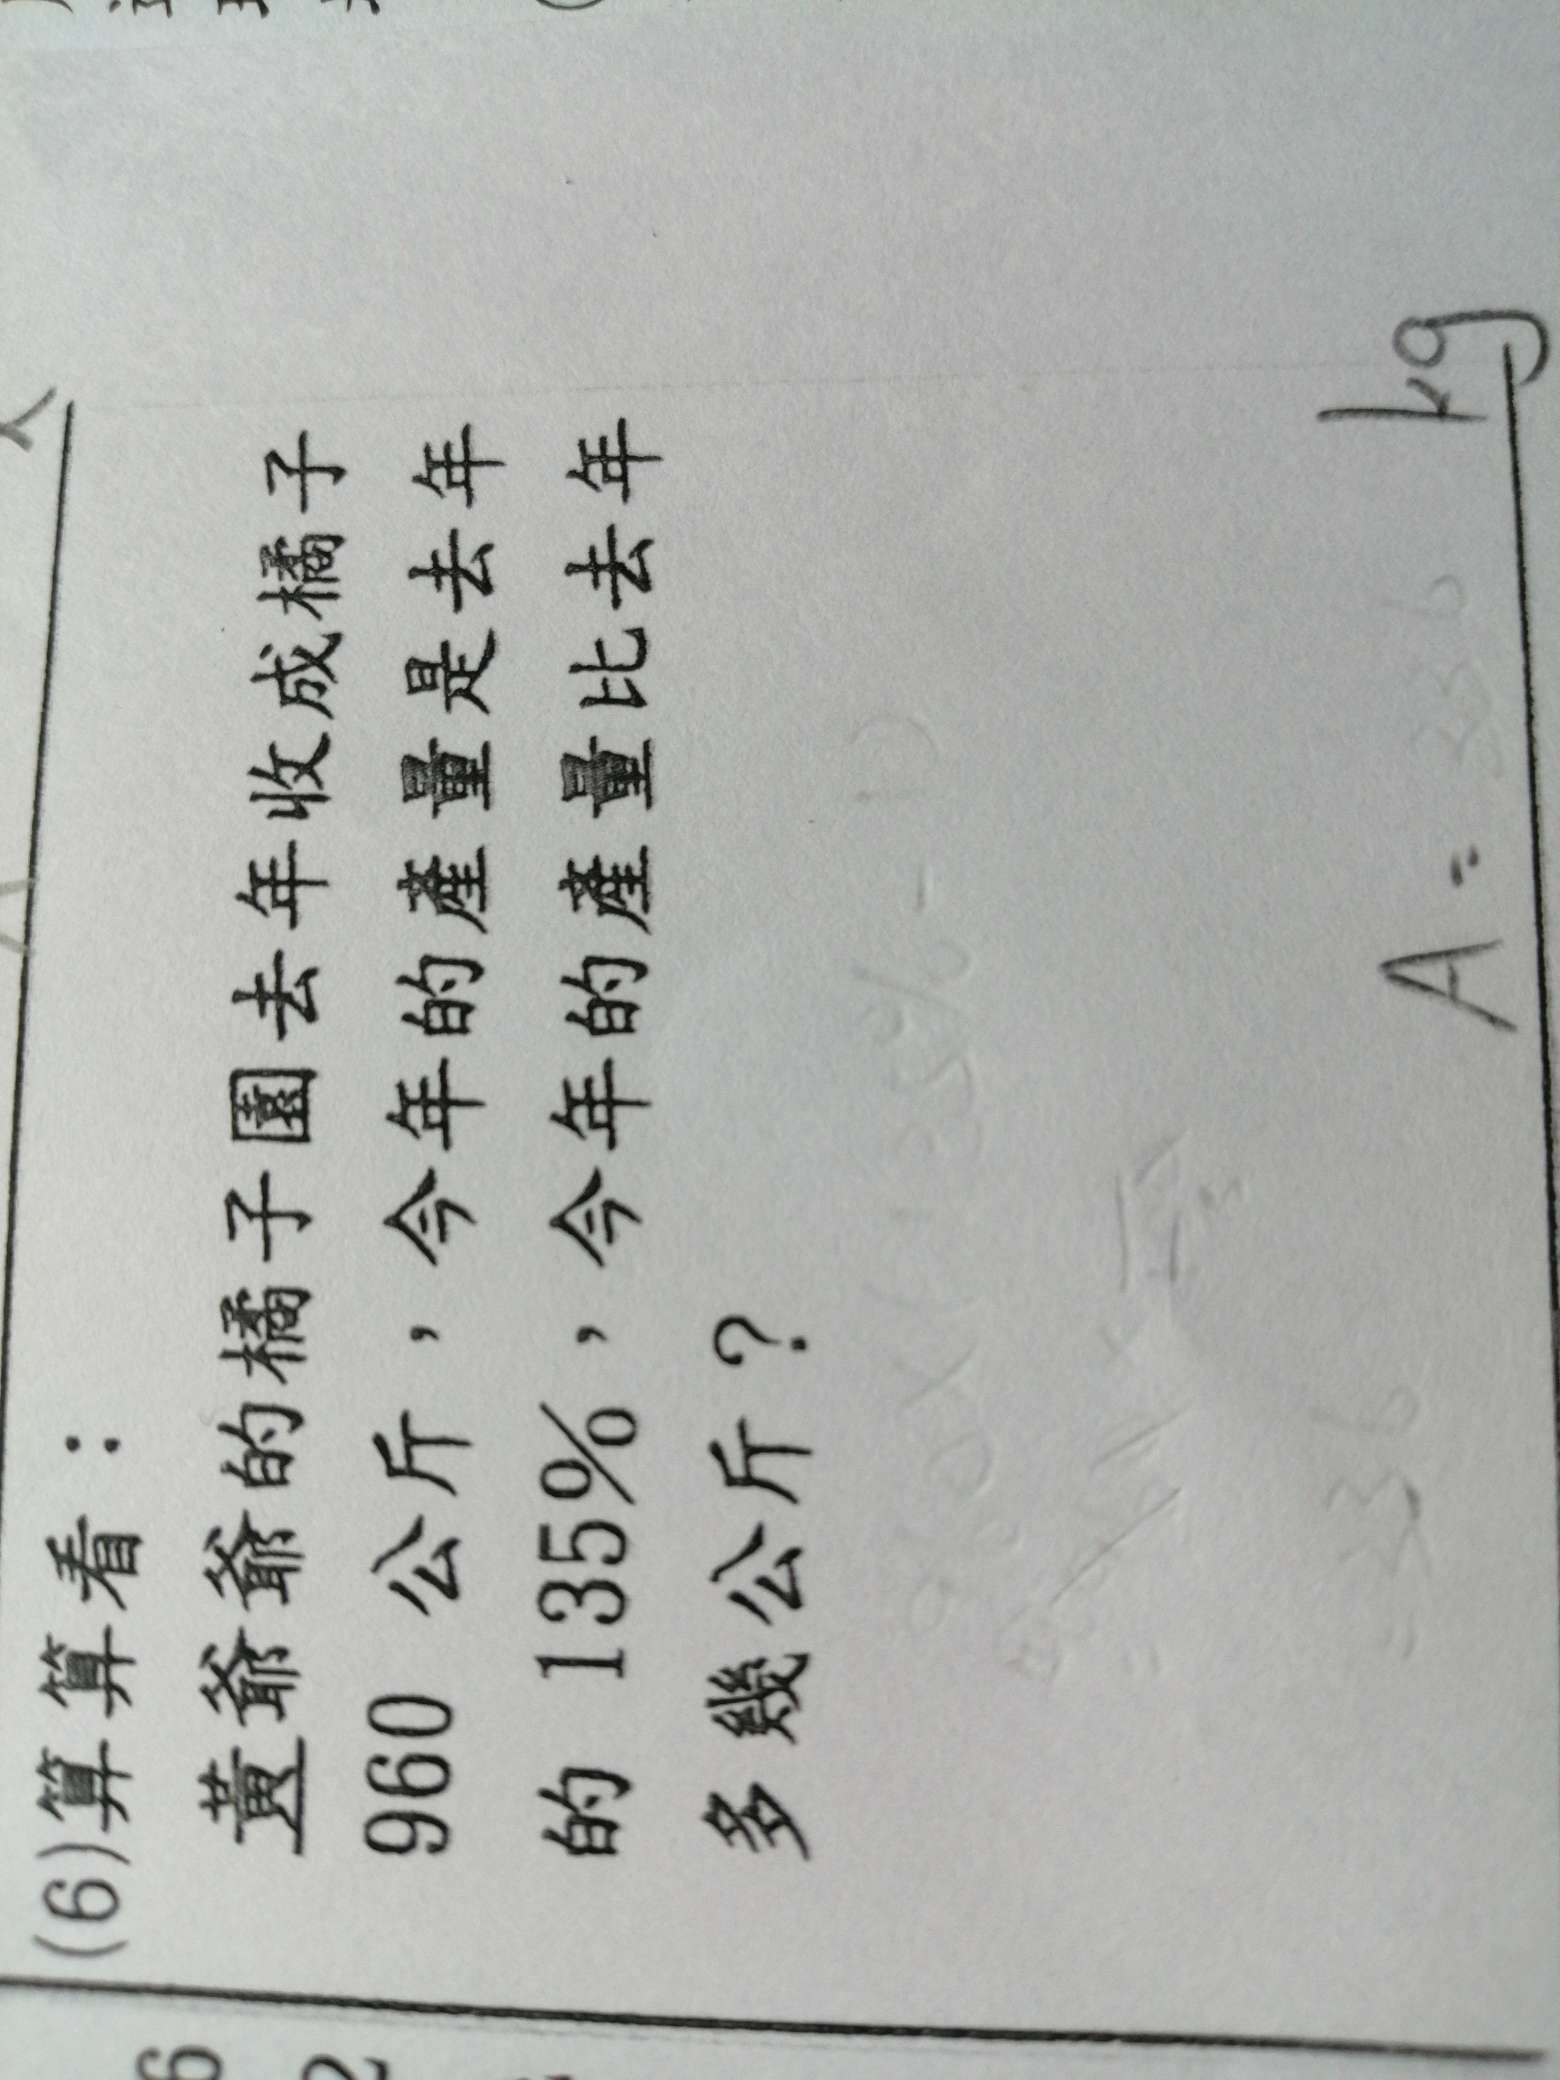 (6)算算看：
黃爺爺的橘子園去年收成橘子
960 公斤，今年的產量是去年
的 135%，今年的產量比去年
多幾公斤？
960×(135%-1)
=336
A=336 kg